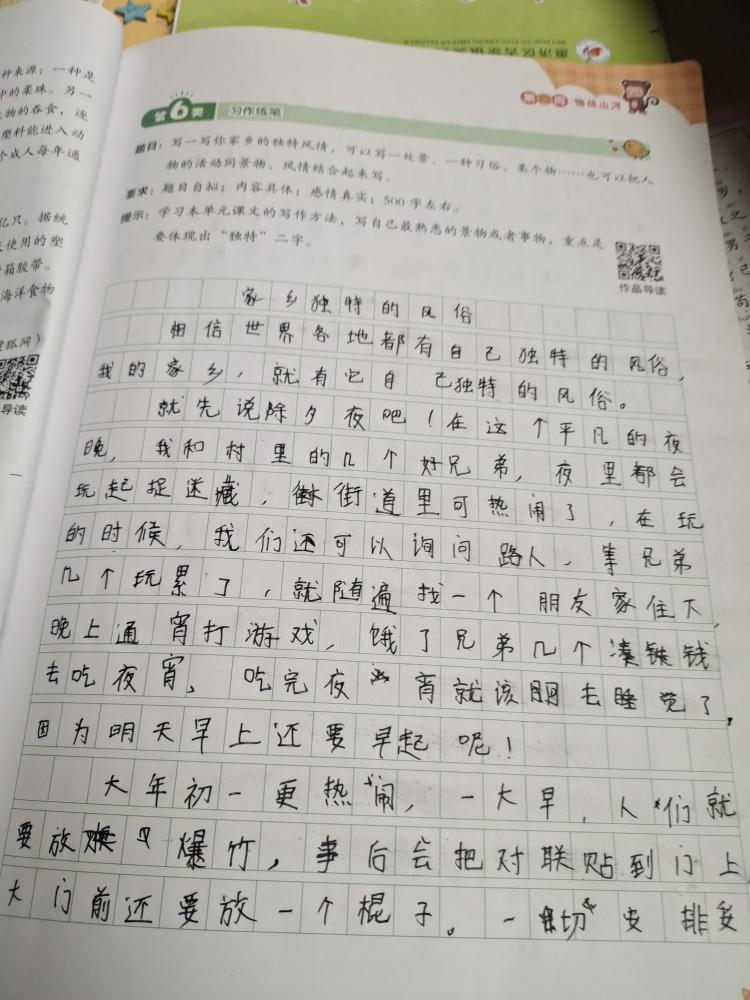 种来源：一种是
中的柔珠。另一
物的吞食，逐
塑料能进入动
个成人每年通
亿只。据统
使用的塑
箱胶带。
海洋食物
狐网）
导读
第6类 习作练笔
锦绣山河
题目：写一写你家乡的独特风情，可以写一处景、一种习俗、某个物……也可以把人
物的活动同景物、风情结合起来写。
要求：题目自拟；内容具体；感情真实；500字左右。
提示：学习本单元课文的写作方法，写自己最熟悉的景物或者事物，重点是
要体现出“独特”二字。
作品导读
家乡独特的风俗
相信世界各地都有自己独特的风俗，
我的家乡，就有它自己独特的风俗。
就先说除夕夜吧！在这个平凡的夜
晚，我和村里的几个好兄弟，夜里都会
玩起捉迷藏，街道里可热闹了，在玩
的时候，我们还可以询问路人，等兄弟
几个玩累了，就随遍找一个朋友家住下，
晚上通宵打游戏，饿了兄弟几个凑钱
去吃夜宵，吃完夜宵就该去睡觉了，
因为明天早上还要早起呢！
大年初一更热闹，一大早，人们就
要放爆竹，事后会把对联贴到门上
大门前还要放一个棍子。一切安排妥